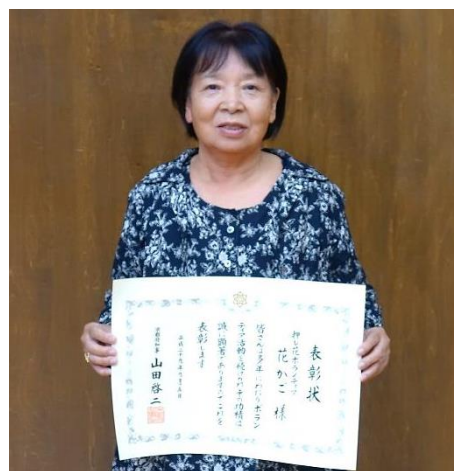 表彰状
押し花ボランティア
花かご 様
皆さんは多年にわたりボラン
ティア活動を続けられその功績は
誠に顕著であります これを
表彰します
平成二十九年
京都府知事 山田啓二